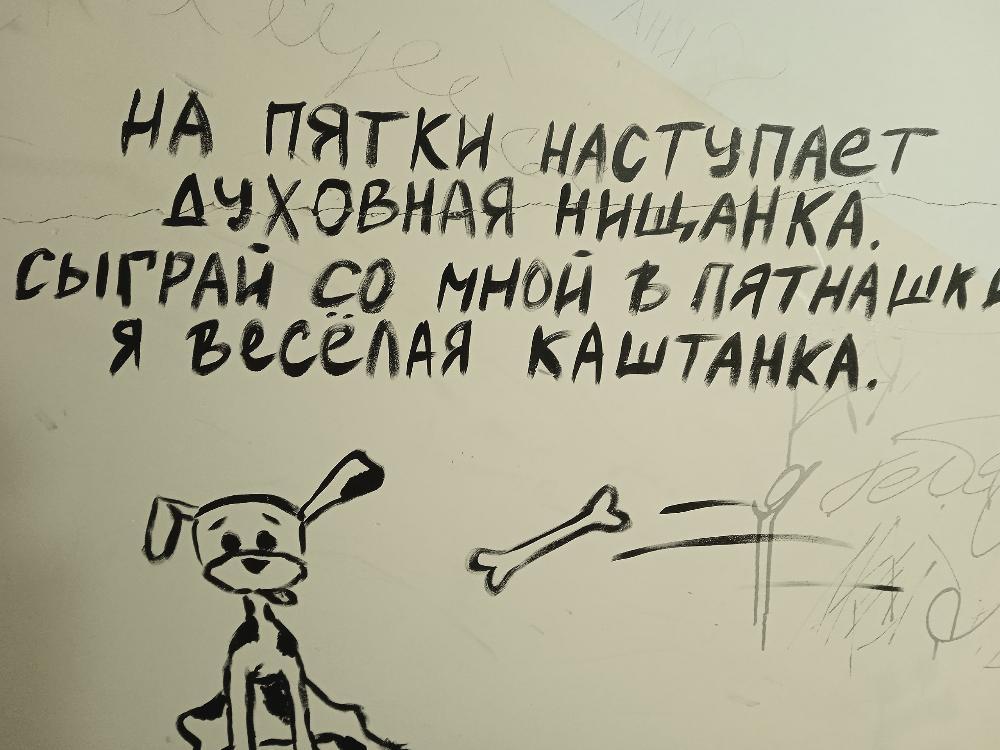 НА ПЯТКИ НАСТУПАеТ
ДУХОВНАЯ НИЩАНКА.
СЫГРАЙ СО МНОЙ В ПЯТНАШКИ
Я ВеСЁЛАЯ КАШТАНКА.